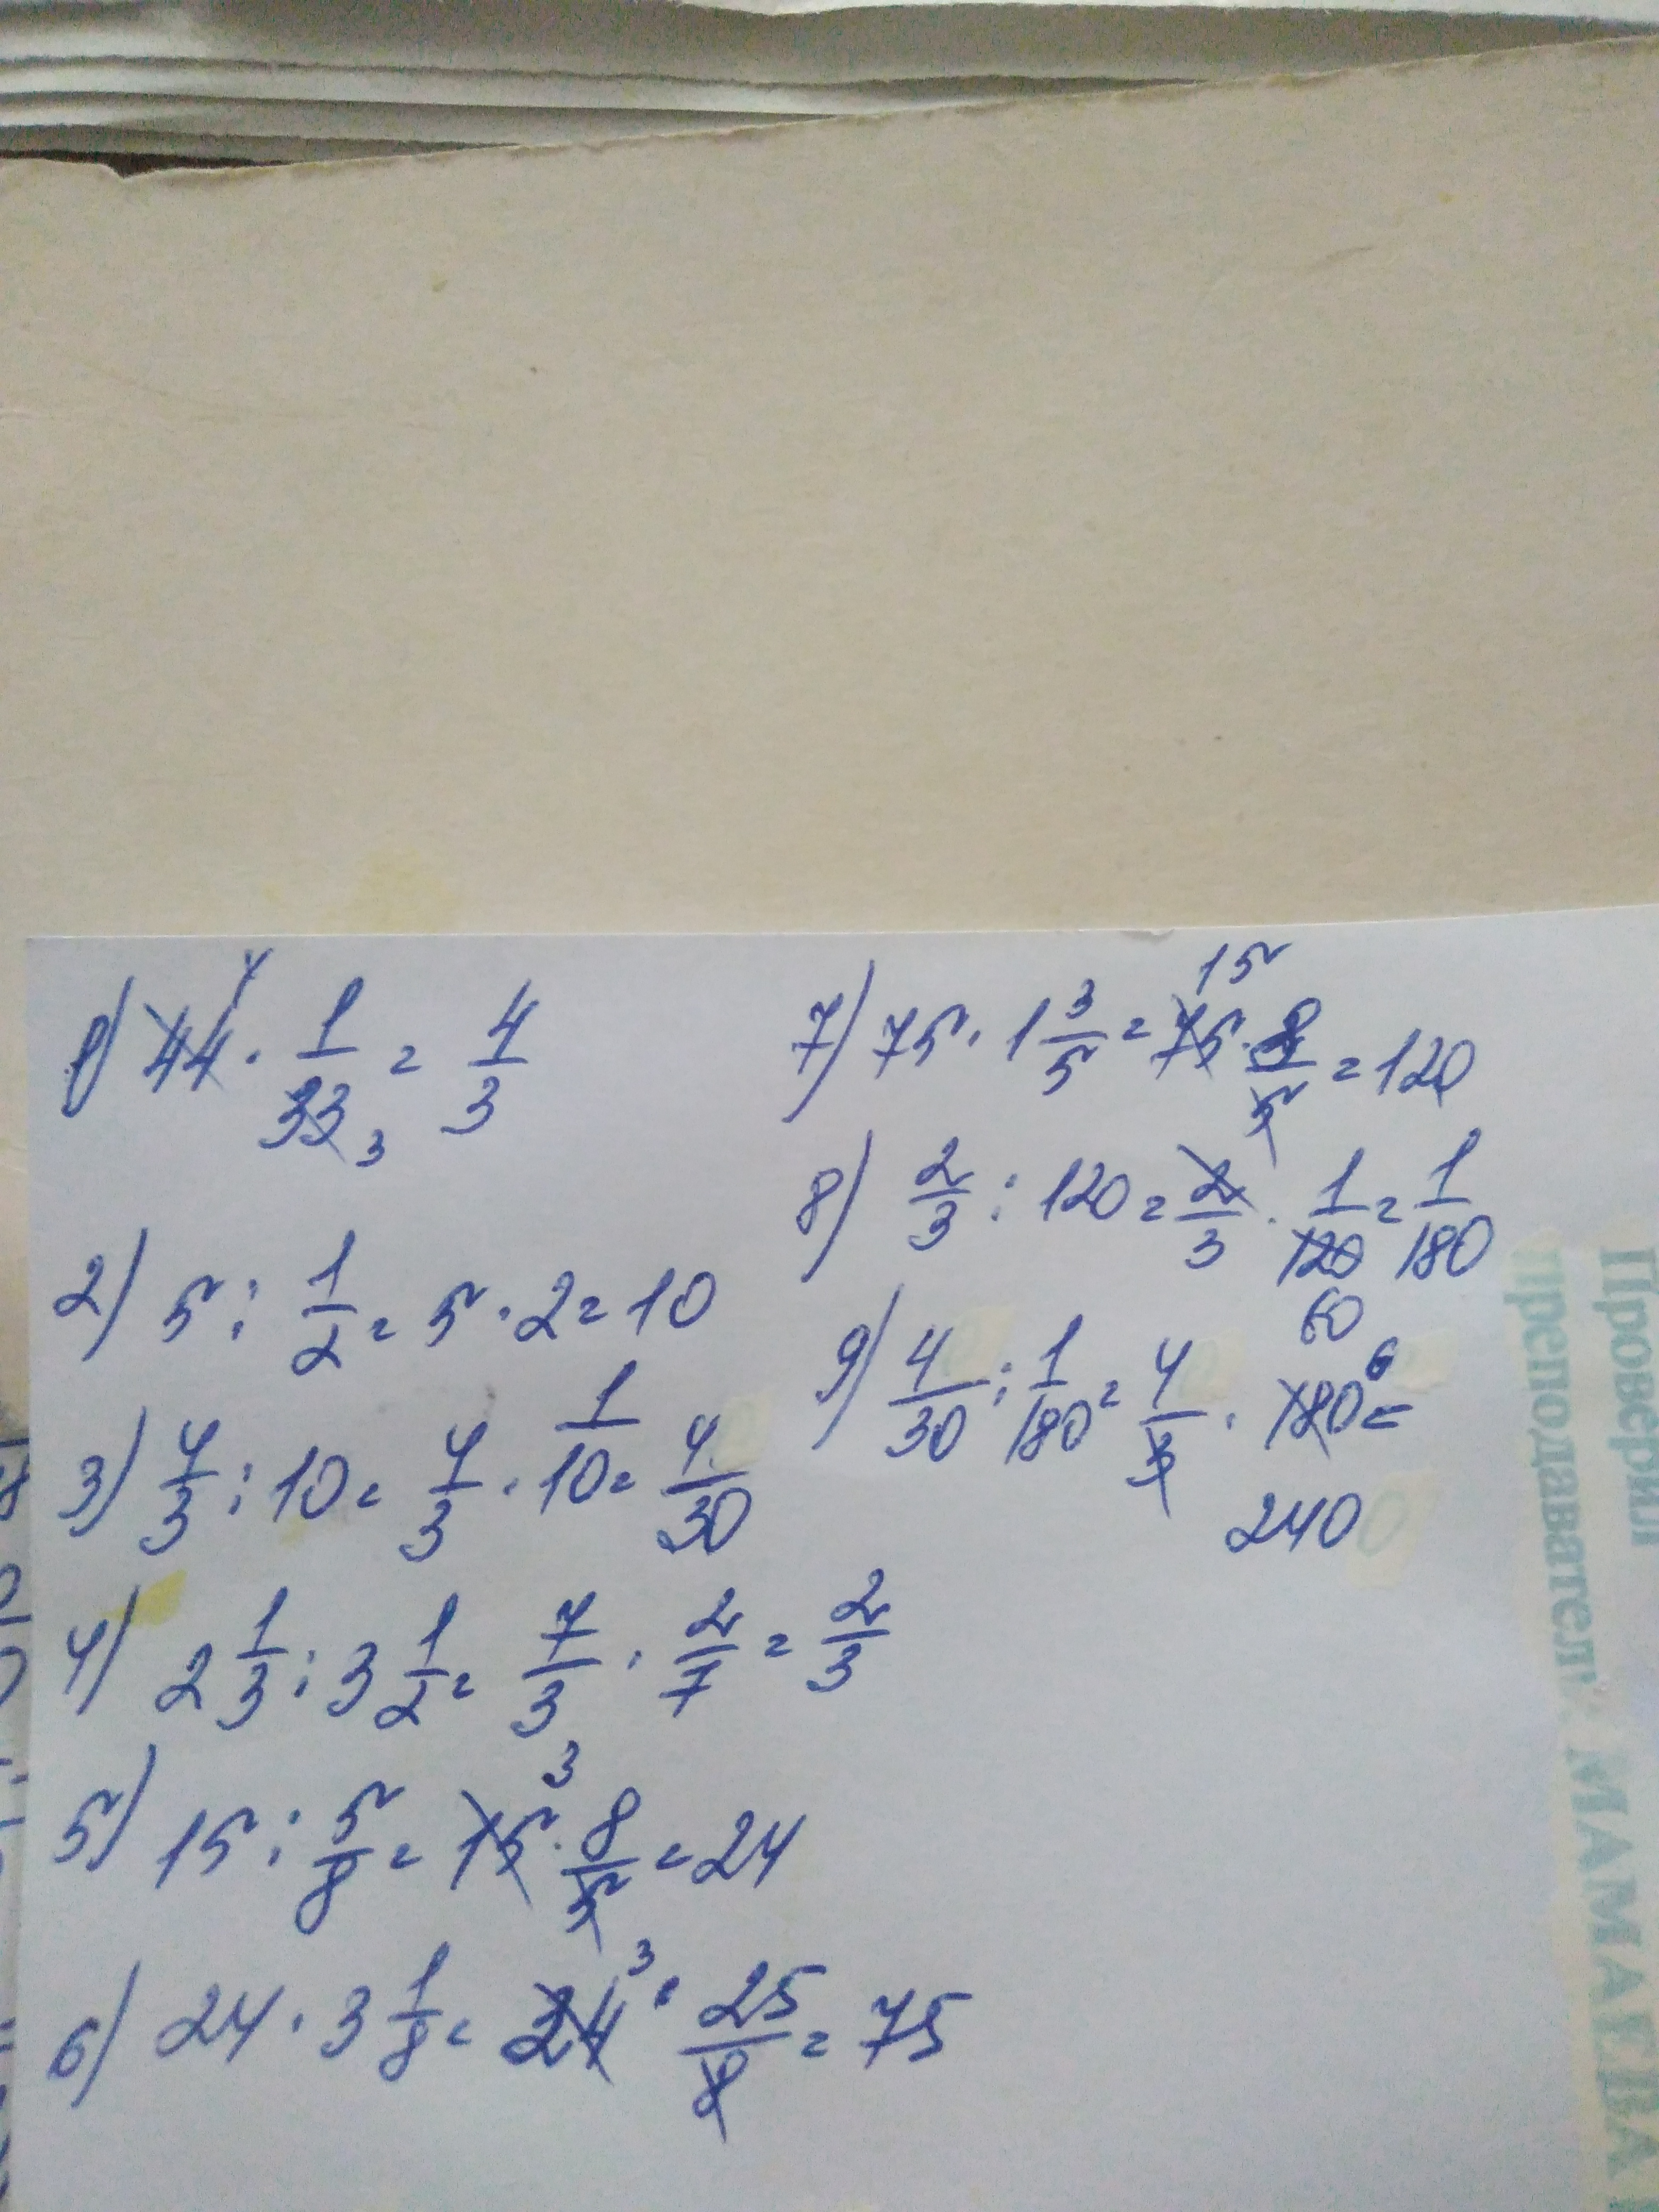 1) 44 4 · 1/33 3 = 4/3
2) 5 : 1/2 = 5 · 2 = 10
3) 4/3 : 10 = 4/3 · 1/10 = 4/30
4) 2 1/3 : 3 1/2 = 7/3 · 2/7 = 2/3
5) 15 : 5/8 = 15 3 · 8/5 = 24
6) 24 · 3 1/8 = 24 3 · 25/8 = 75
7) 75 · 1 3/5 = 75 15 · 8/5 = 120
8) 2/3 : 120 = 2/3 · 1/120 60 = 1/180
9) 4/30 : 1/180 = 4/3 · 180 6 =
240
Проверил
преподаватель:
МАМАЕВА